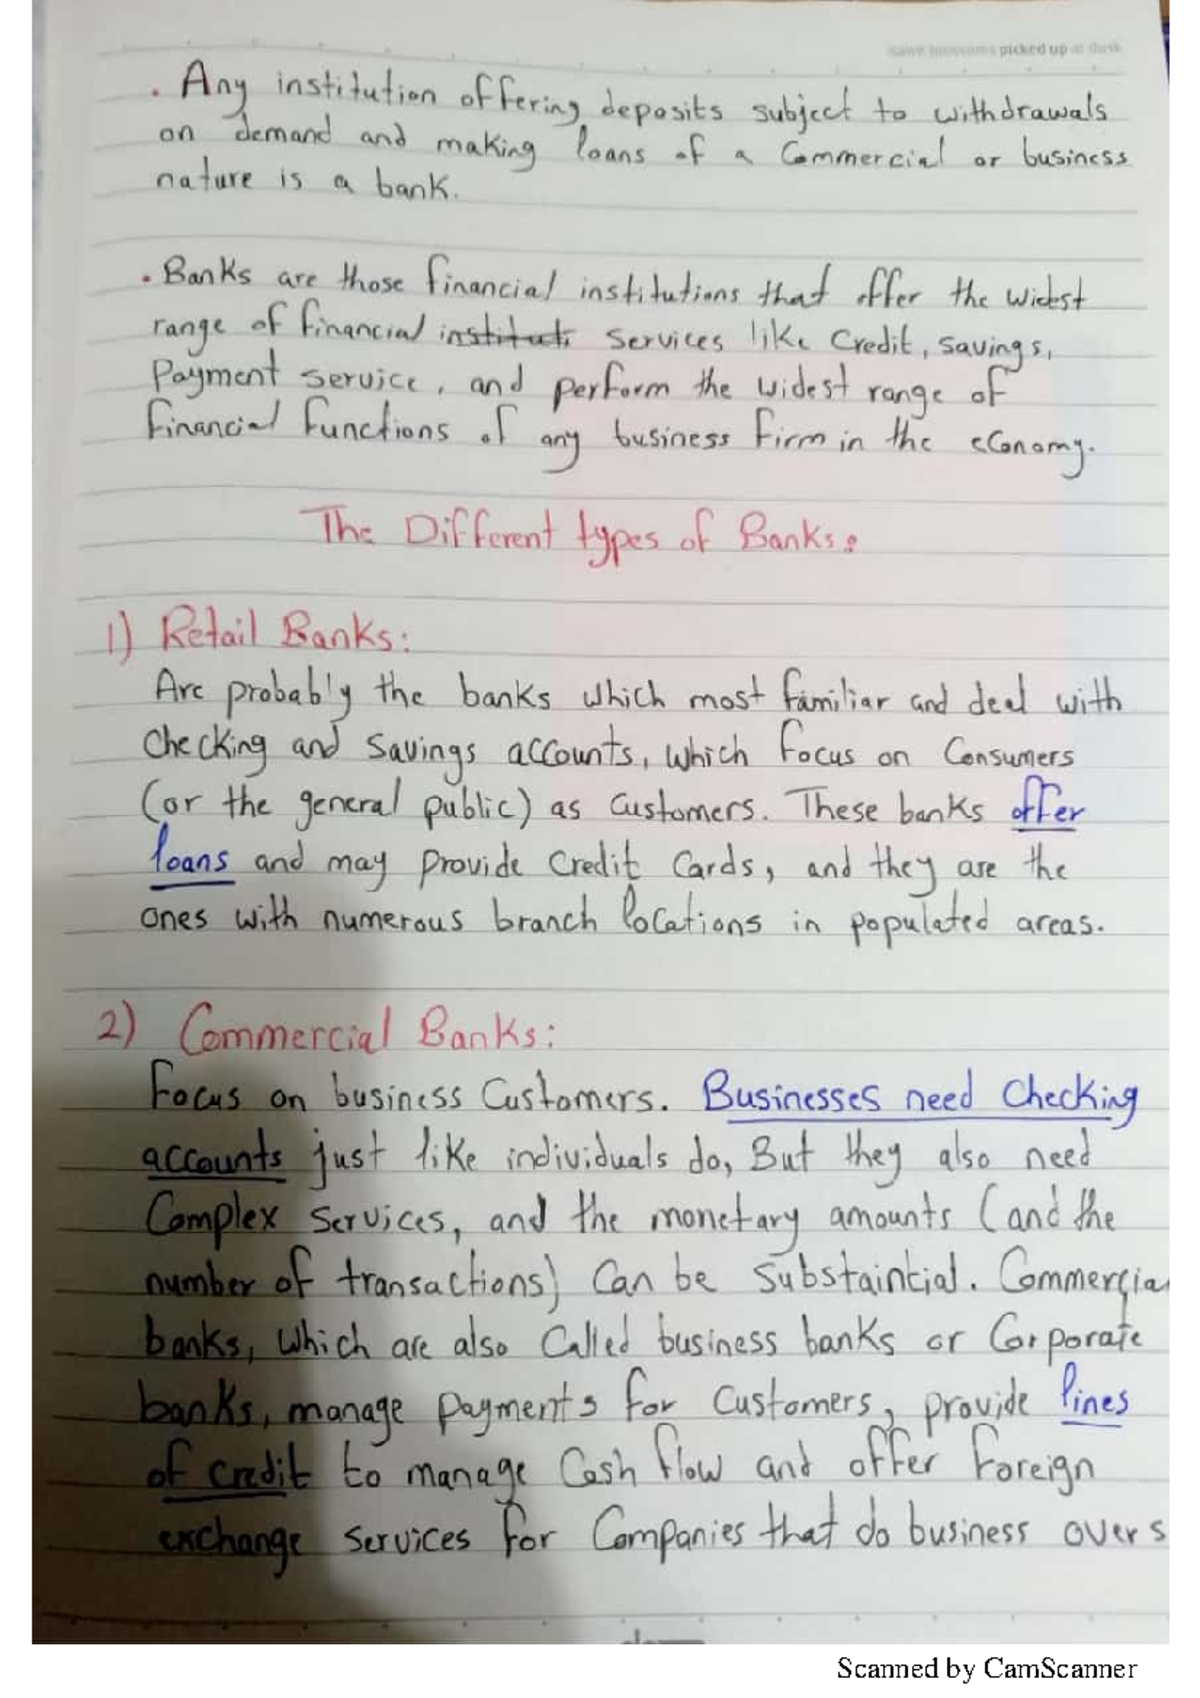 dawn blossoms picked up at dusk
. Any institution offering deposits subject to withdrawals
on demand and making loans of a Commercial or business
nature is a bank.
. Banks are those financial institutions that offer the widest
range of financial institut services like Credit, savings,
Payment service, and perform the widest range of
financial functions of any business firm in the economy.
The Different types of Banks:
1) Retail Banks:
Are probably the banks which most familiar and deal with
Checking and Savings accounts, which focus on Consumers
(or the general public) as Customers. These banks offer
loans and may provide Credit Cards, and they are the
ones with numerous branch locations in populated areas.
2) Commercial Banks:
Focus on business Customers. Businesses need Checking
accounts just like individuals do, But they also need
Complex services, and the monetary amounts (and the
number of transactions) Can be substaintial. Commercia
banks, which are also Called business banks or Corporate
banks, manage payments for customers, provide lines
of credit to manage Cash flow and offer foreign
exchange services for Companies that do business overs
Scanned by CamScanner